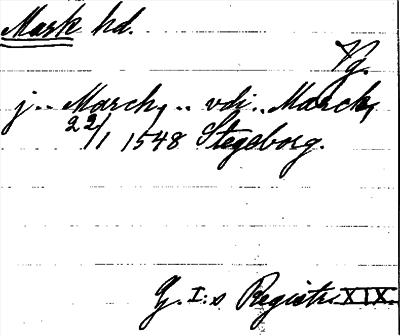 Mark hd.
Vg.
j .. March, .. vdj .. March,
22/1 1548 Stegeborg.
G. I:s Registr. XIX.